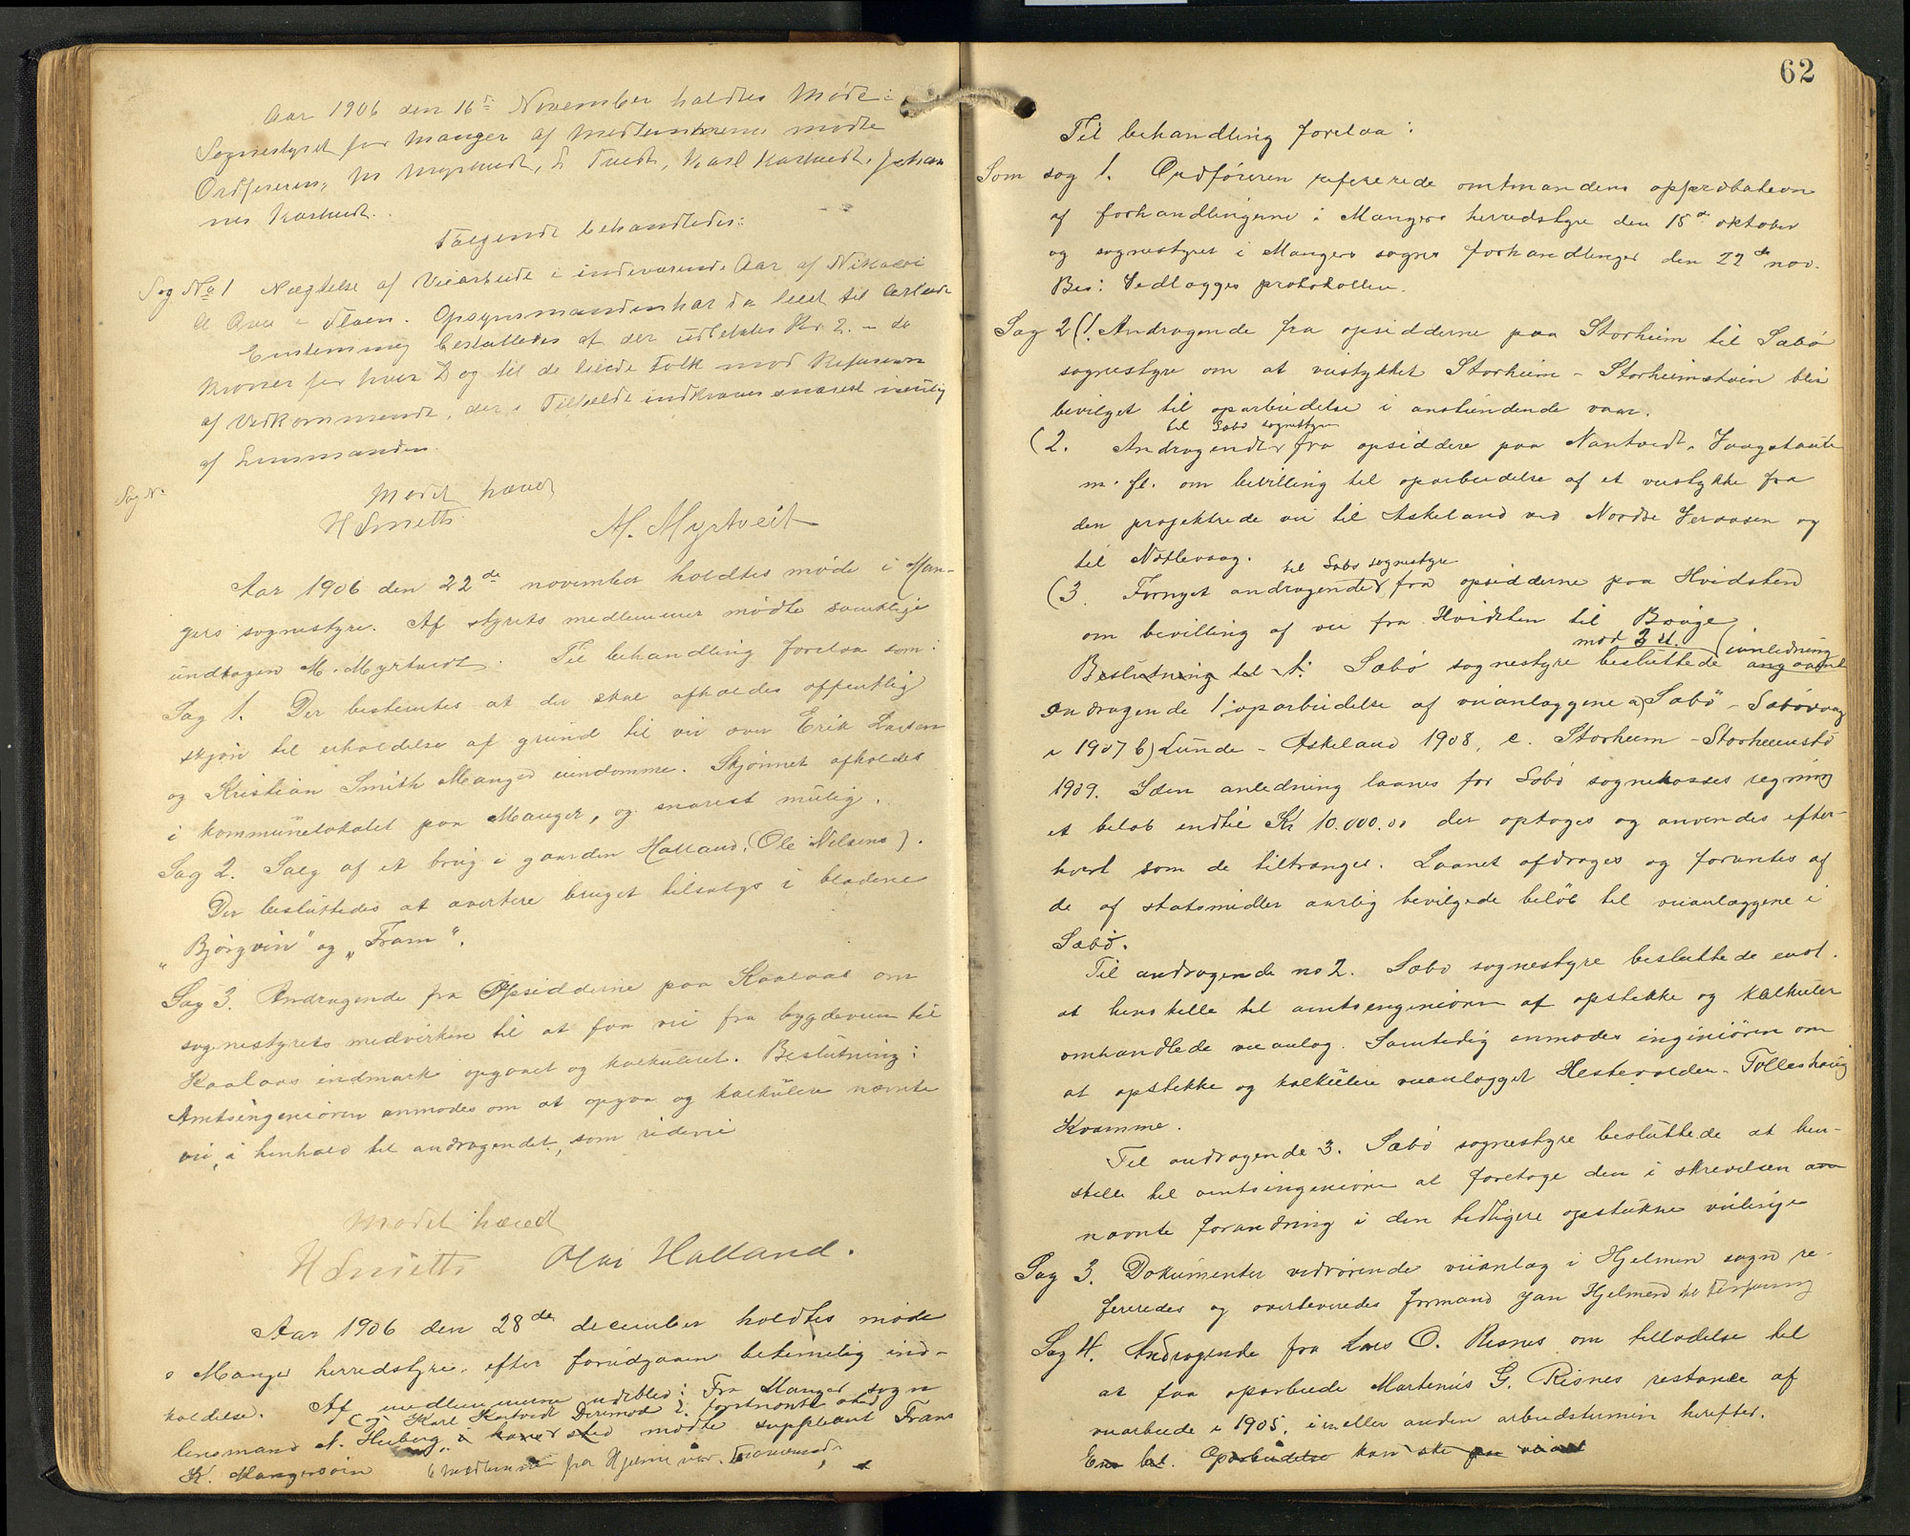 Aar 1906 den 16de November holdtes Møde i
Sognestyret for Manger af Medlemmerne mødte
Ordføreren, M Myrtvedt, L Tvedt, Karl Kartvedt, Johan
nes Kartvedt.
Følgende behandledes:
Sag No 1 Nægtelse af Veiarbeide i indeværende Aar af Nikolai
Opsynsmanden har da leiet til Arbeide
Enstemmig besluttedes at der udbetales Kr 2 - to
Kroner for hver Dag til de leiede Folk mod Refusion
af Vedkommende, der i Tilfælde indkræves snarest mulig
af Lensmanden.
Sag N.
Mødet hævet
H Smith M. Myrtveit
Aar 1906 den 22de november holdtes møde i Man-
gers sognestyre. Af styrets medlemmer mødte samtlige
undtagen M. Myrtvedt. Til behandling forelaa som:
Sag 1. Der bestemtes at der skal afholdes offentlig
skjøn til erholdelse af grund til vei over Erik Larsen
og Kristian Smith Manger eiendomme. Skjønnet afholdes
i kommunelokalet paa Manger, og snarest mulig.
Sag 2. Salg af et brug i gaarden Halland, (Ole Nilsens).
Der besluttedes at avertere bruget tilsalgs i bladene
„Bjørgvin" og „Fram".
Sag 3. Andragende fra Opsidderne paa Kaalaas om
sognestyrets medvirken til at faa vei fra bygdeveien til
Kaalaas indmark opgaaet og kalkuleret. Beslutning:
Amtsingeniøren anmodes om at opgaa og kalkulere nævnte
vei, i henhold til andragendet, som ridevei
Mødet hævet
H Smith Olai Halland.
Aar 1906 den 28de december holdtes møde
i Manger herredstyre, efter forudgaaen betimelig ind-
kaldelse. Af medlemmerne udeblev: Fra Manger sogn
(og Karl Kartvedt
lensmand A. Heiberg, i hans sted mødte suppleant Frans
K. Mangersøien 6 medlemmer fra Hjelme var fraværende
62
Til behandling forelaa:
Som sag 1. Ordføreren refererede amtmandens approbation
af forhandlingerne i Mangers herredstyre den 15de oktober
og sognestyret i Mangers sogns forhandlinger den 22de nov.
Bes: Vedlægges protokollen.
Sag 2 (1. Andragende fra opsidderne paa Storheim til Sæbø
sognestyre om at veistykket Storheim - Storheimstøen blir
bevilget til oparbeidelse i anstundende vaar.
til Sæbø sognestyre
(2. Andragende fra opsiddere paa Nautvedt, Vaagstaute
m. fl. om bevilling til oparbeidelse af et veistykke fra
den projektrede vei til Askeland ved Nordre og
til Nøtlevaag.
til Sæbø sognestyre
(3. Fornyet andragende fra opsidderne paa Hvidsten
om bevilling af vei fra Hvidsten til Bøige
mod 2 st. (innledning
Beslutning til 1: Sæbø sognestyre besluttede angaaende
andragende 1: oparbeidelse af veianlæggene a) Sæbø - Sæbøvaag
i 1907 b) Lunde - Askeland 1908, c. Storheim - Storheimstø
1909. I den anledning laanes for Sæbø sognekasses regning
et beløb indtil Kr 10.000.00 der optages og anvendes efter-
hvert som de tiltrænges. Laanet afdrages og forrentes af
de af statsmidler aarlig bevilgede beløb til veianlæggene i
Sæbø.
Til andragende no 2. Sæbø sognestyre besluttede enst.
at henstille til amtsingeniøren at opstikke og kalkulere
omhandlede veianlæg. Samtidig anmodes ingeniøren om
at opstikke og kalkulere veianlægget Hestevolden - Tolleshaug
Kvamme.
Til andragende 3. Sæbø sognestyre besluttede at hen-
stille til amtsingeniøren at foretage den i skrivelsen
nævnte forandring i den tidligere opstukne veilinje
Sag 3. Dokumenter vedrørende veianlæg i Hjelmen sogn re-
fereredes og overleveredes formand Jan Hjelmen til
Sag 4. Andragende fra Lars O. Risnes om tilladelse til
at faa oparbeide Martinus G. Risnes restance af
veiarbeide i 1905, i en eller anden arbeidstermin herefter.
Ens bes. Oparbeidelse kan ske paa